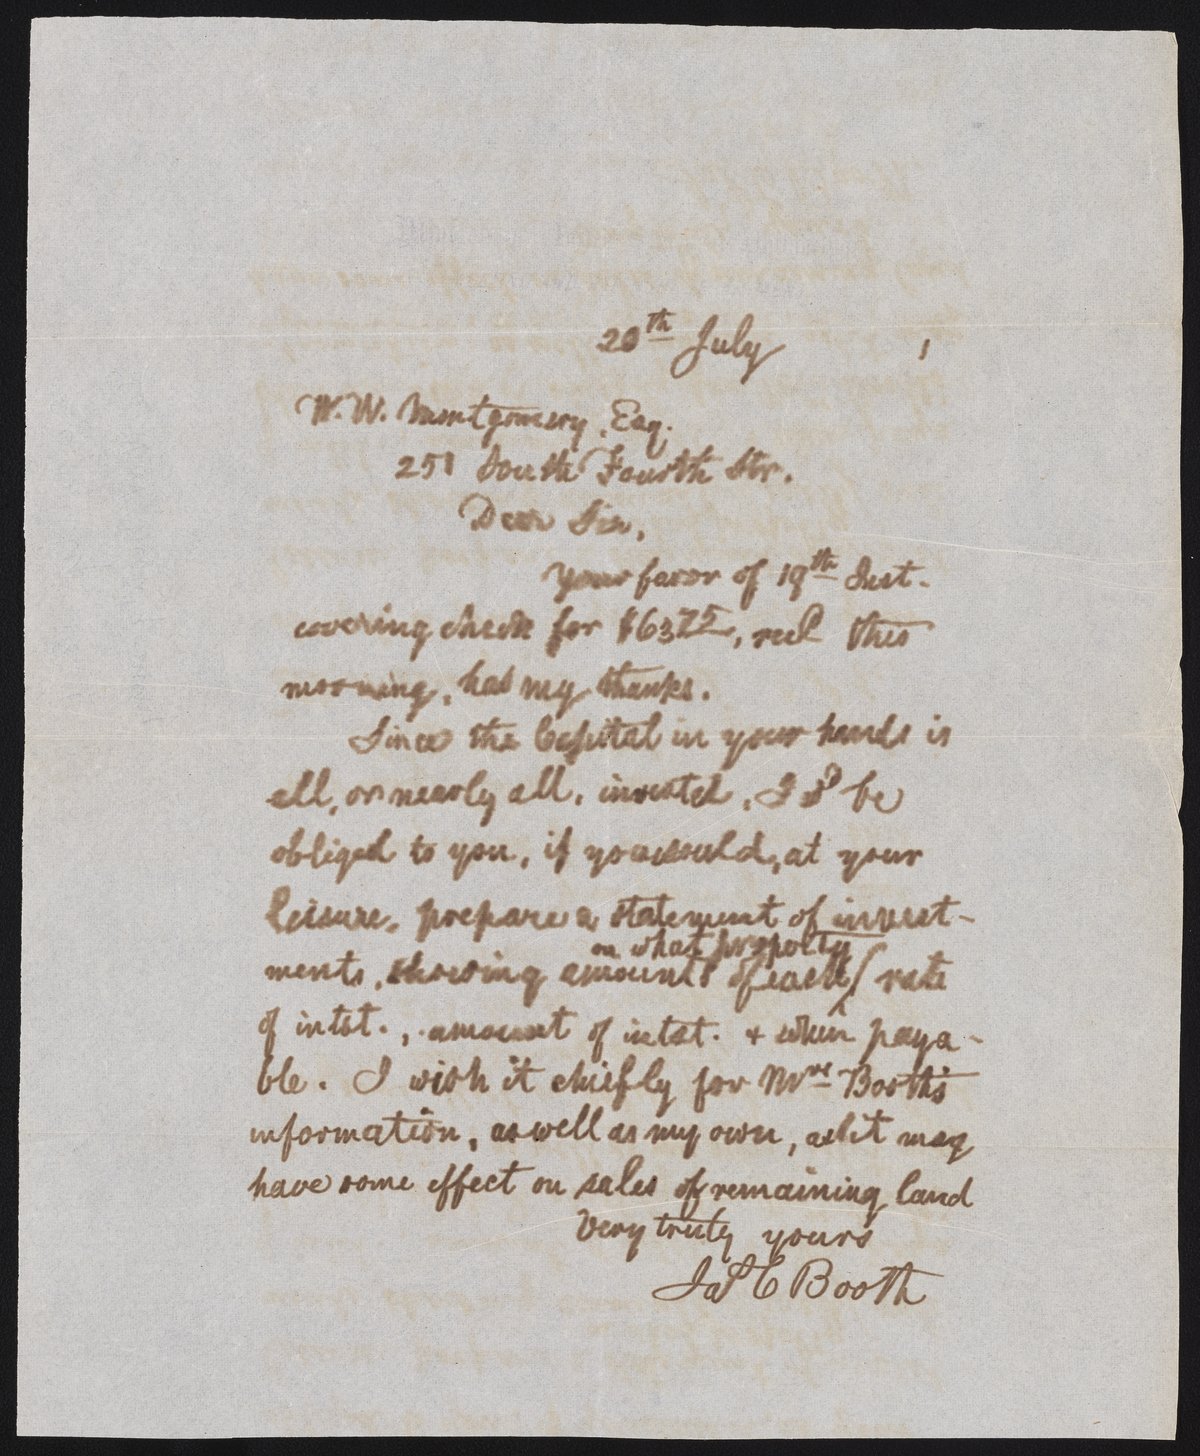 20th July 1
W. W. Montgomery, Esq.
251 South Fourth Str.
Dear Sir,
Your favor of 19th Inst.
covering check for $6375, recd this
morning, has my thanks.
Since the Capital in your hands is
all, or nearly all, invested, I be
obliged to you, if you would, at your
leisure, prepare a statement of invest-
on what property
ments, showing amounts of each / rate
of intst., amount of intst. + when paya-
ble. I wish it chiefly for Mrs Booth's
information, as well as my own, as it may
have some effect on sales of remaining land
Very truly yours
Jas C Booth